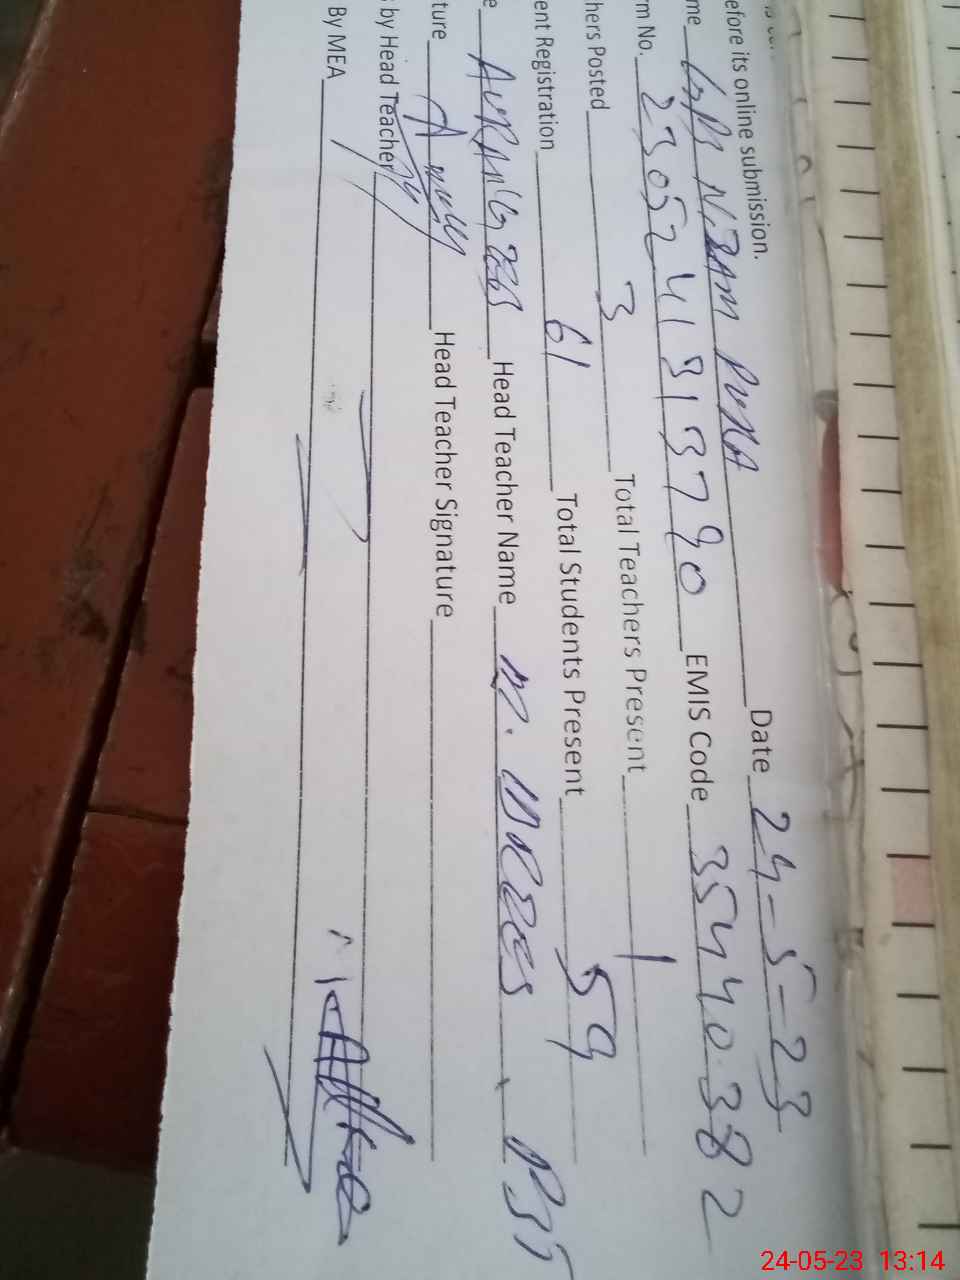 efore its online submission.
me GPS NIZAM PURA Date 24-5-23
rm No. 2305241313790 EMIS Code 35440382
hers Posted 3 Total Teachers Present 1
ent Registration 61 Total Students Present 59
e AURANGZEB Head Teacher Name M. IDREES, PST
ture Head Teacher Signature
s by Head Teacher
By MEA
24-05-23 13:14